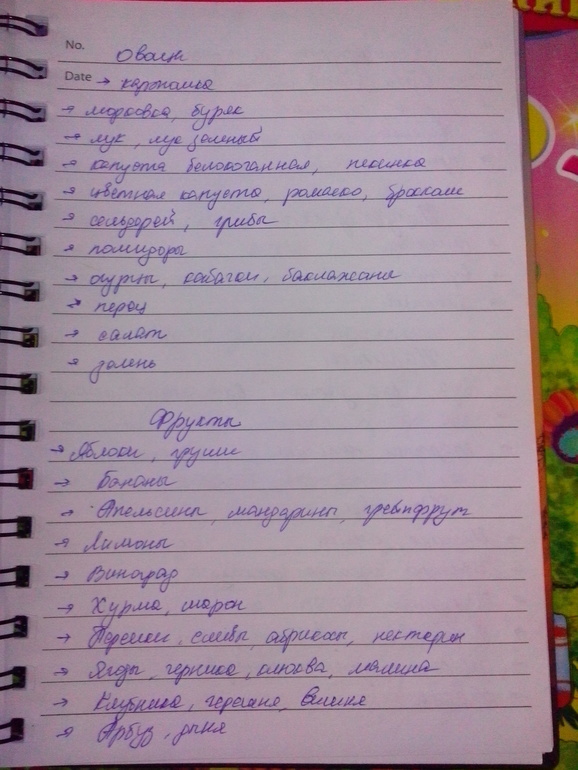 No. Овощи
Date → картошка
→ морковка, буряк
→ лук, лук зеленый
→ капуста белокочанная, пекинка
→ цветная капуста, романеско, брокколи
→ сельдерей, грибы
→ помидоры
→ огурцы, кабачки, баклажаны
→ перец
→ салат
→ зелень
Фрукты
→ Яблоки, груши
→ Бананы
→ Апельсины, мандарины, грейпфрут
→ Лимоны
→ Виноград
→ Хурма, шарон
→ Персики, сливы, абрикосы, нектарин
→ Ягоды, черника, клюква, малина
→ Клубника, черешня, вишня
→ Арбуз, дыня